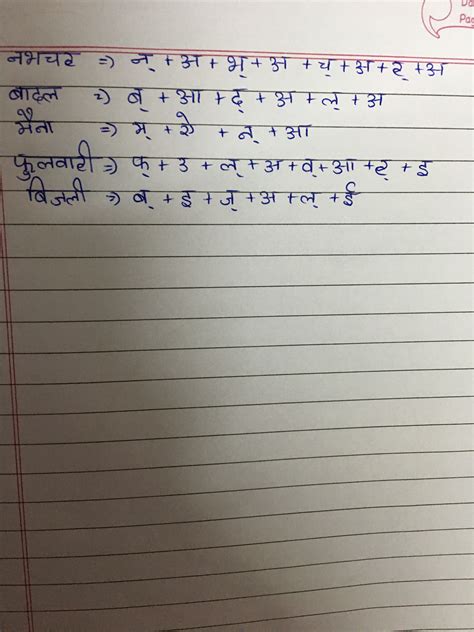 Da
Pag
नभचर => न् + अ + भ् + अ + च् + अ + र् + अ
बादल => ब् + आ + द् + अ + ल् + अ
मैना => म् + ऐ + न् + आ
फुलवारी => फ् + उ + ल् + अ + व् + आ + र् + इ
बिजली => ब् + इ + ज् + अ + ल् + ई